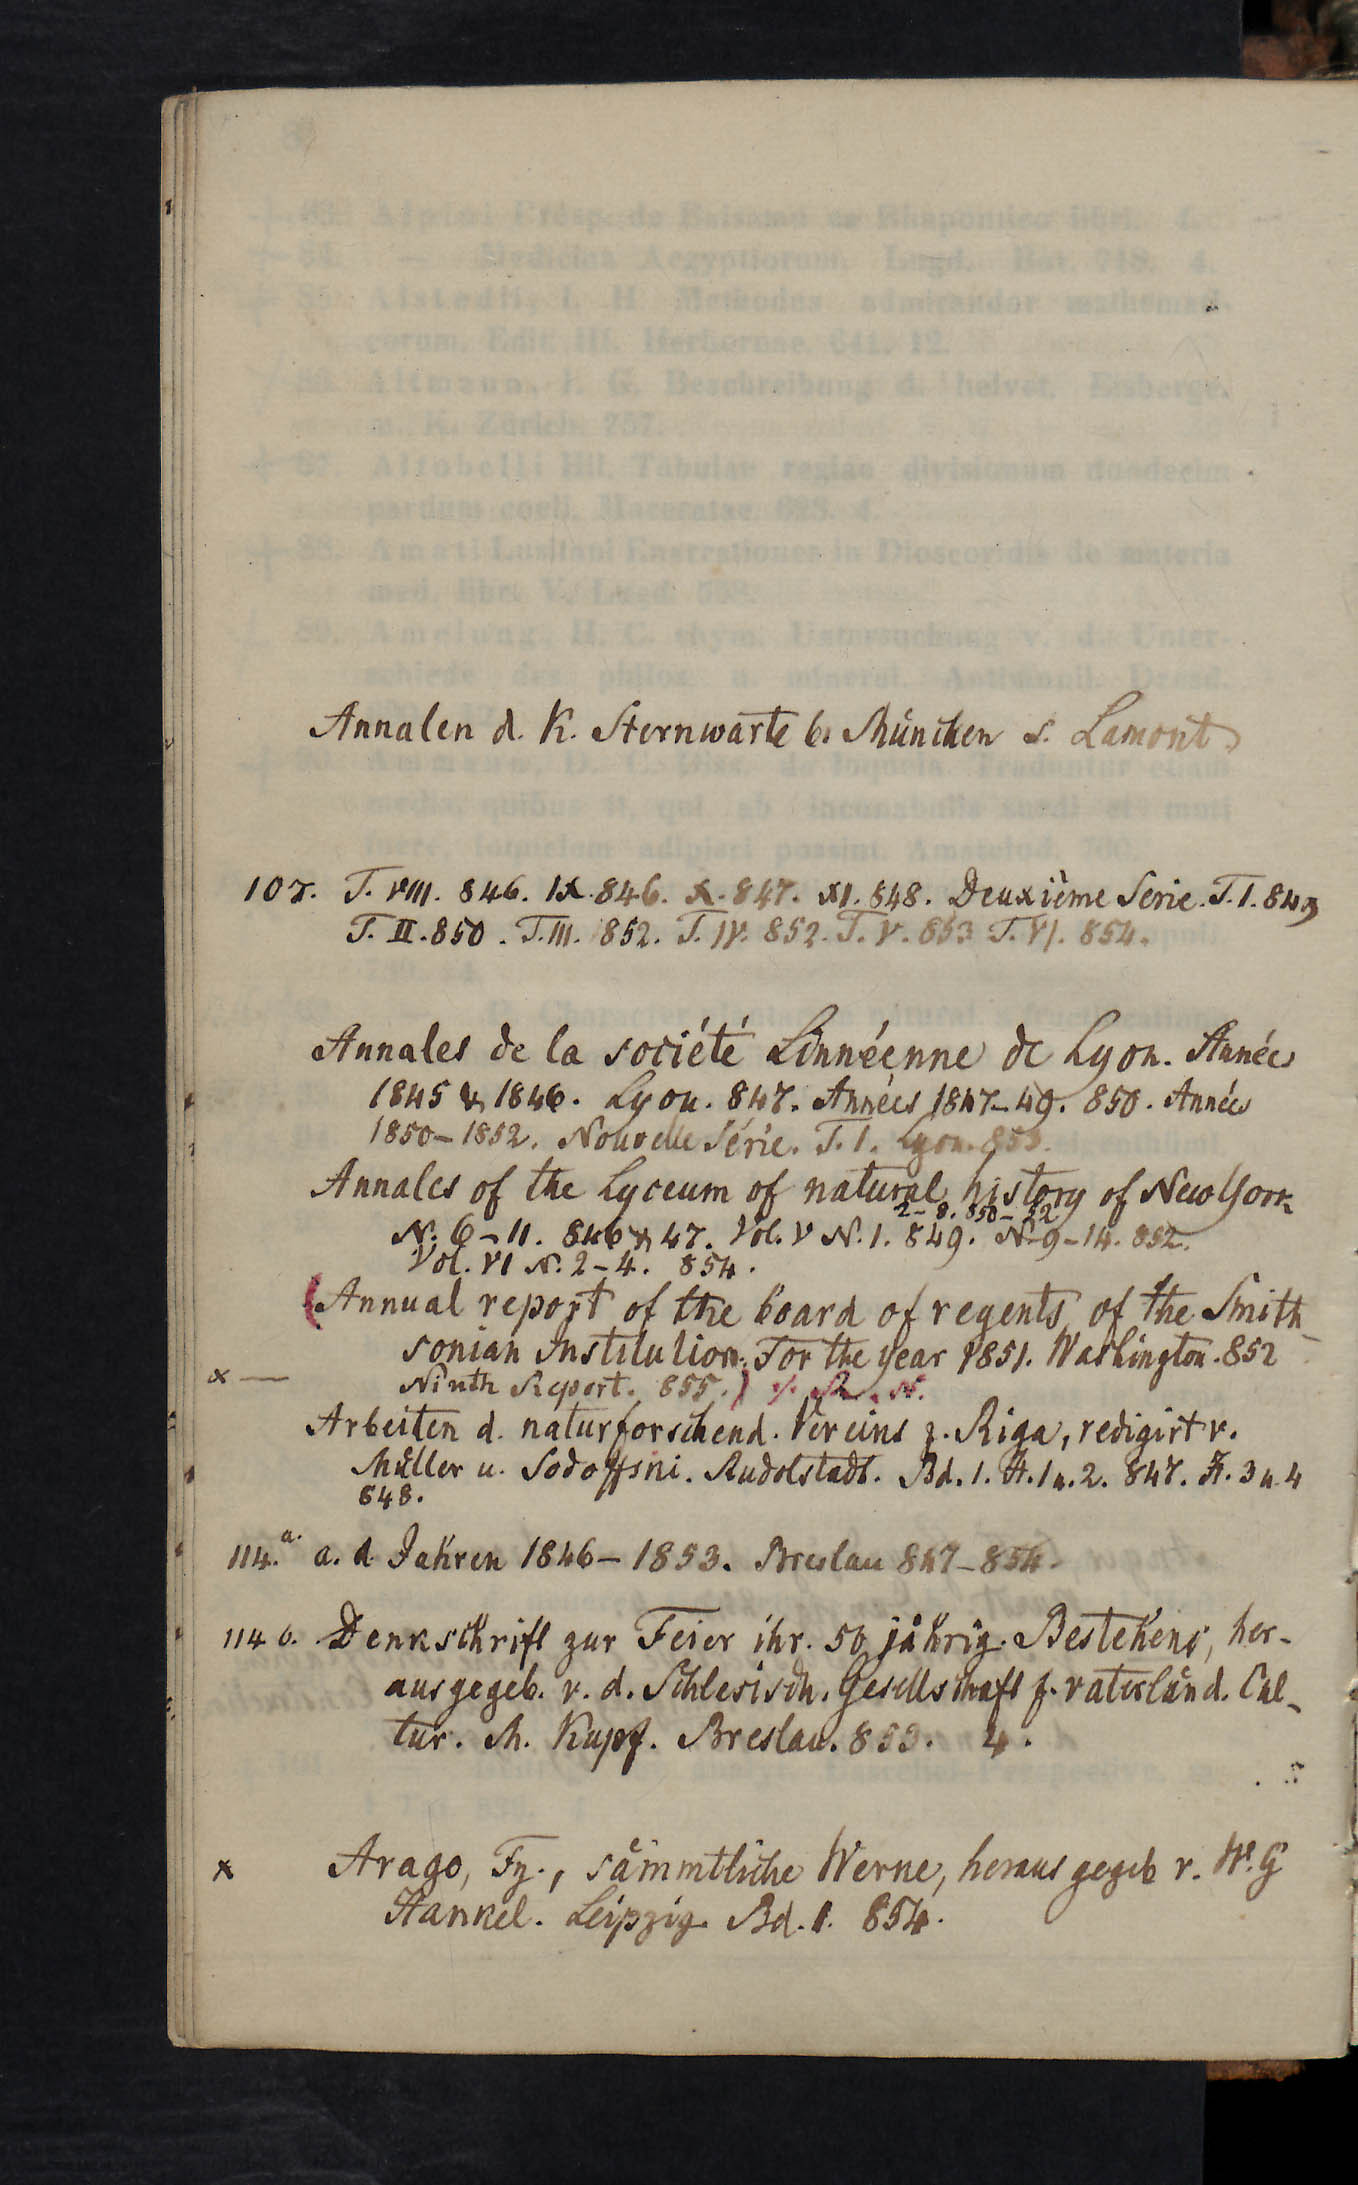 Annalen d. K. Sternwarte b. München s. Lamont
107. T. VIII. 846. IX. 846. X. 847. XI. 848. Deuxième Serie. T. I. 849
T. II. 850. T. III. 852. T. IV. 852. T. V. 853 T. VI. 854.
Annales de la société Linnéenne de Lyon. Années
1845 & 1846. Lyon. 847. Années 1847-49. 850. Années
1850-1852. Nouvelle Série. T. 1. Lyon. 853.
Annales of the Lyceum of natural history of New York
2-8. 850-52
N. 6-11. 846 & 47. Vol. V N. 1. 849. N. 9-14. 852.
Vol. VI N. 2-4. 854.
(Annual report of the board of regents of the Smith-
sonian Institution. For the year 1851. Washington. 852
x — Ninth Report. 855.)
Arbeiten d. naturforschend. Vereins z. Riga, redigirt v.
Müller u. Sodoffsni. Rudolstadt. Bd. 1. H. 1 u. 2. 847. H. 3 u. 4
848.
114.a. a. d Jahren 1846-1853. Breslau 847-854.
114 b. Denkschrift zur Feier ihr. 50 jährig. Bestehens, her-
ausgegeb. v. d. Schlesisch. Gesellschaft f. vaterländ. Cul-
tur. M. Kupf. Breslau. 853. 4.
x Arago, Fz., sämmtliche Werke, herausgegeb v. W. G
Hankel. Leipzig. Bd. 1. 854.